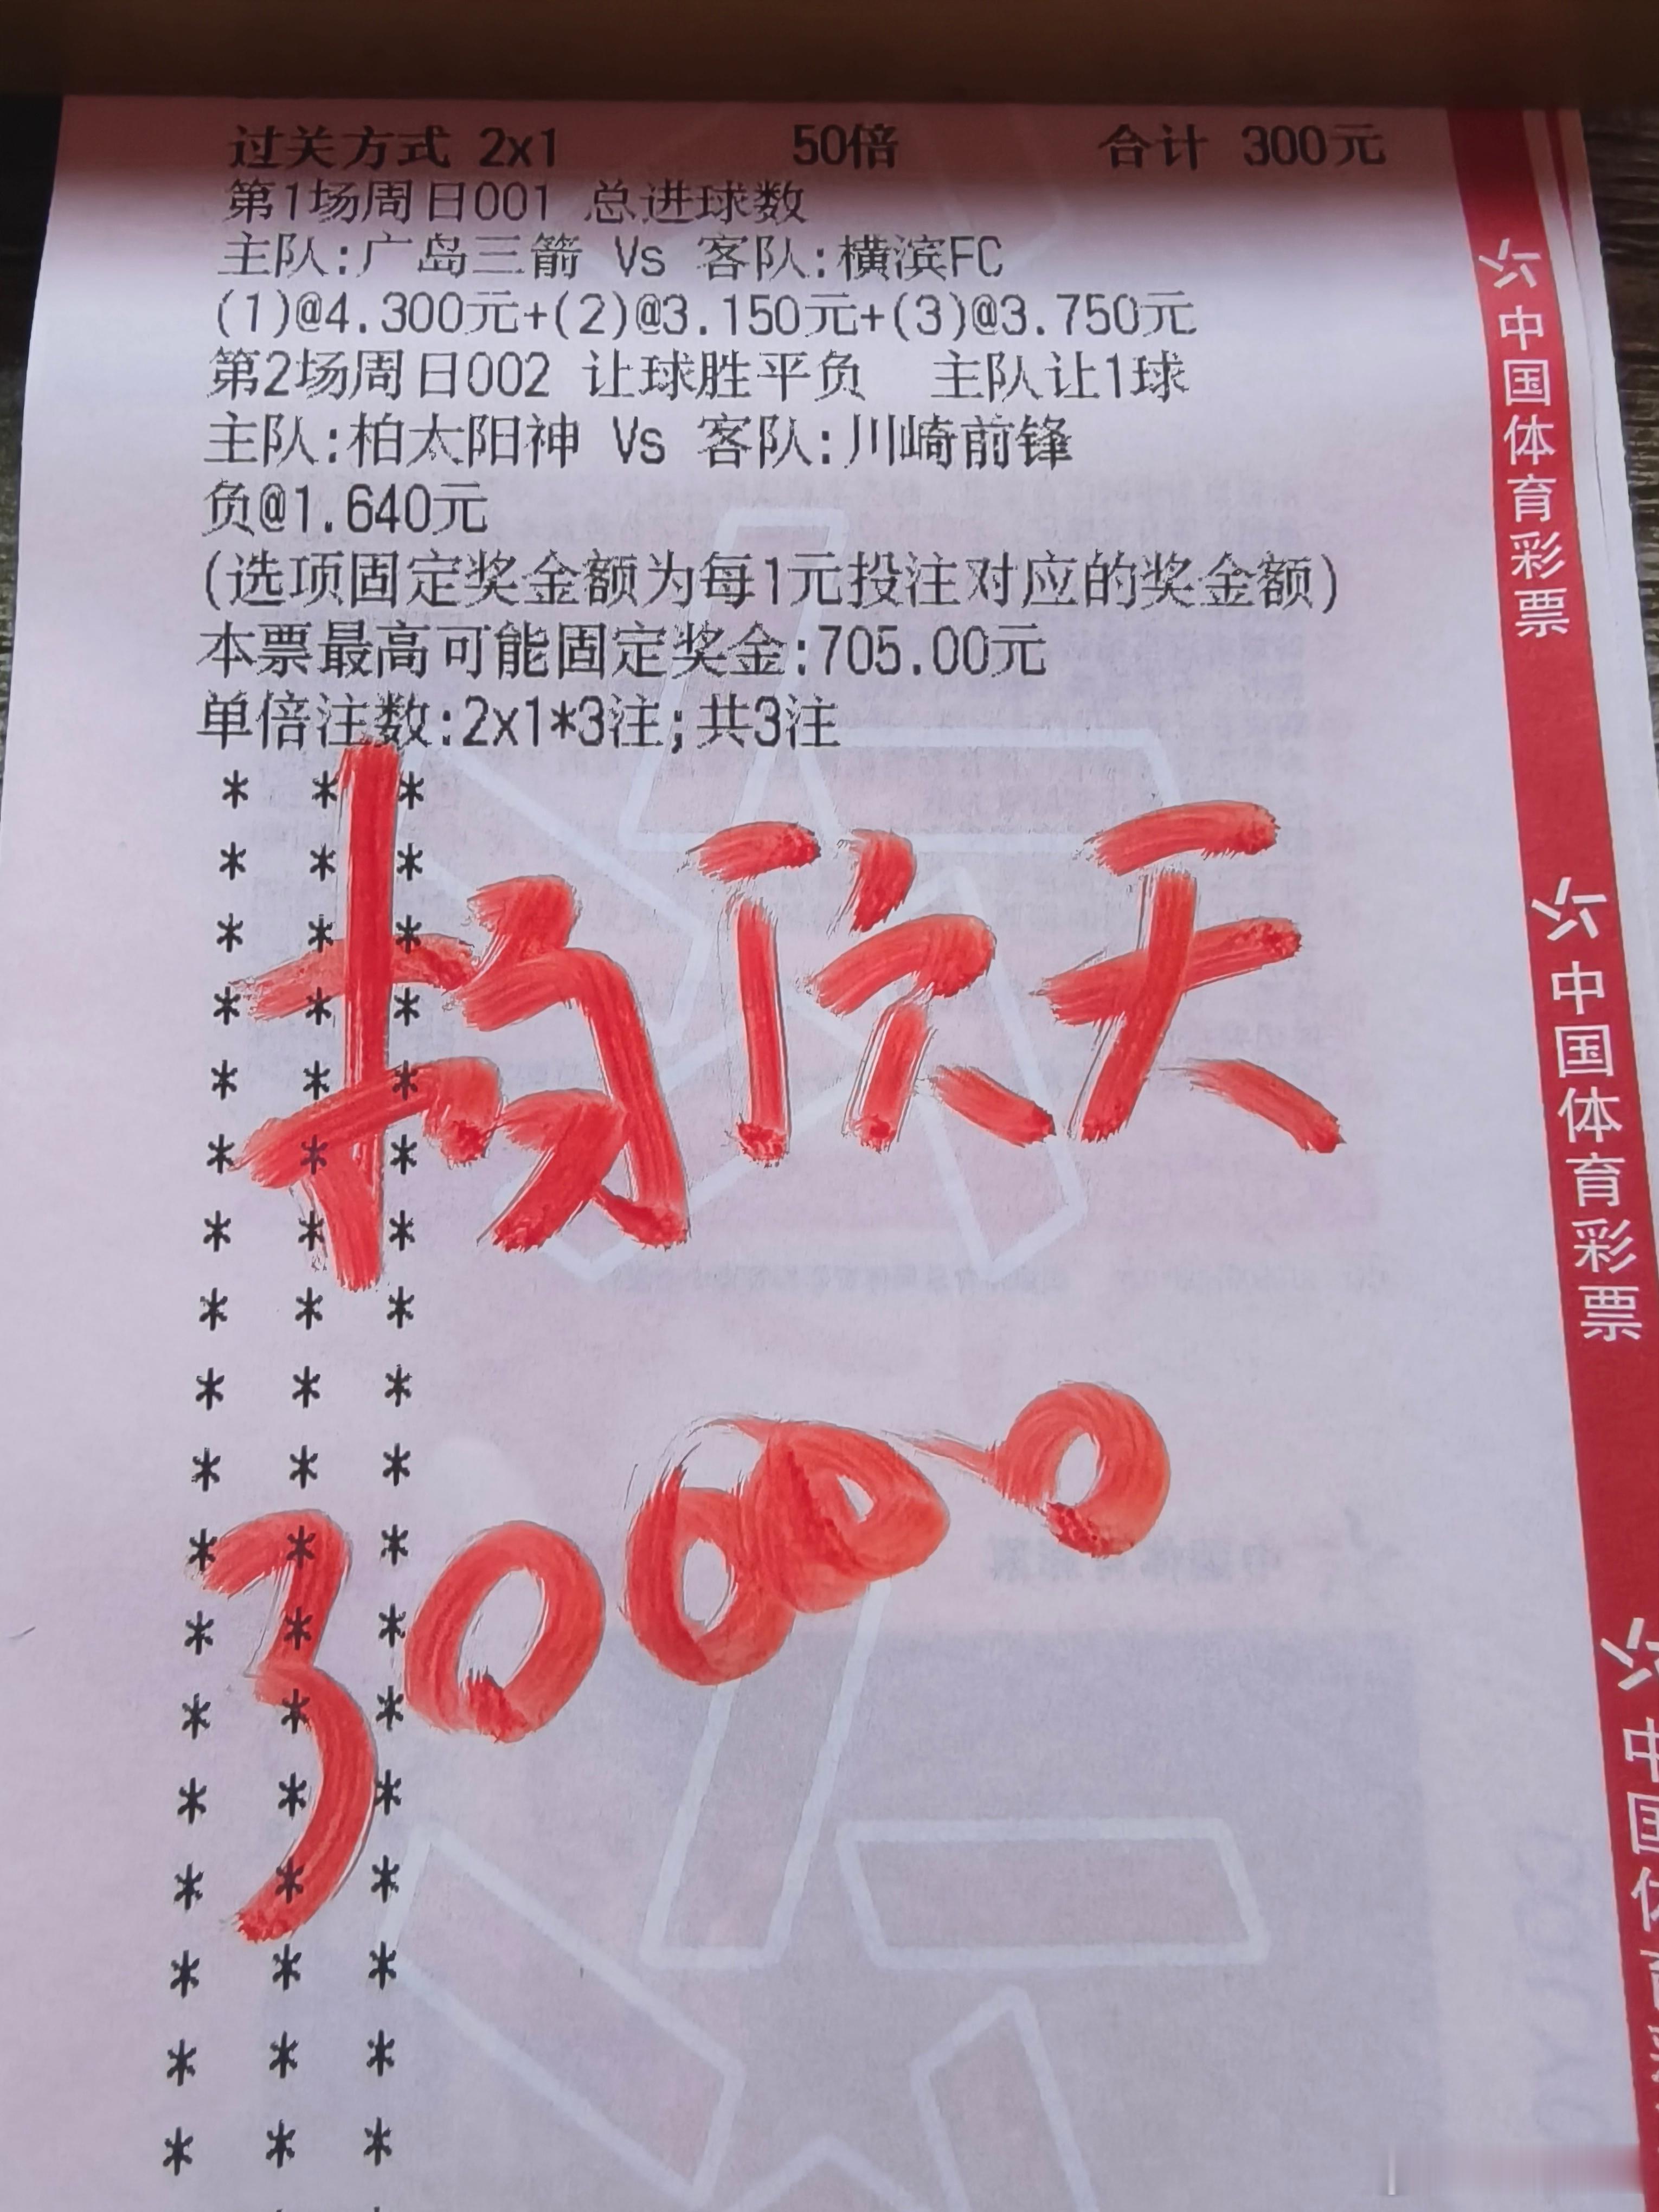 过关方式 2x1 50倍 合计 300元
第1场周日001 总进球数
主队:广岛三箭 Vs 客队:横滨FC
(1)@4.300元+(2)@3.150元+(3)@3.750元
第2场周日002 让球胜平负 主队让1球
主队:柏太阳神 Vs 客队:川崎前锋
负@1.640元
(选项固定奖金额为每1元投注对应的奖金额)
本票最高可能固定奖金:705.00元
单倍注数:2x1*3注;共3注
* * *
* * *
* * *
* * *
* * *
* * *
* * *
* * *
* * *
* * *
* * *
* * *
* * *
* * *
* * *
* * *
* * *
* * *
杨欣天
30000
中国体育彩票
中国体育彩票
中国体育